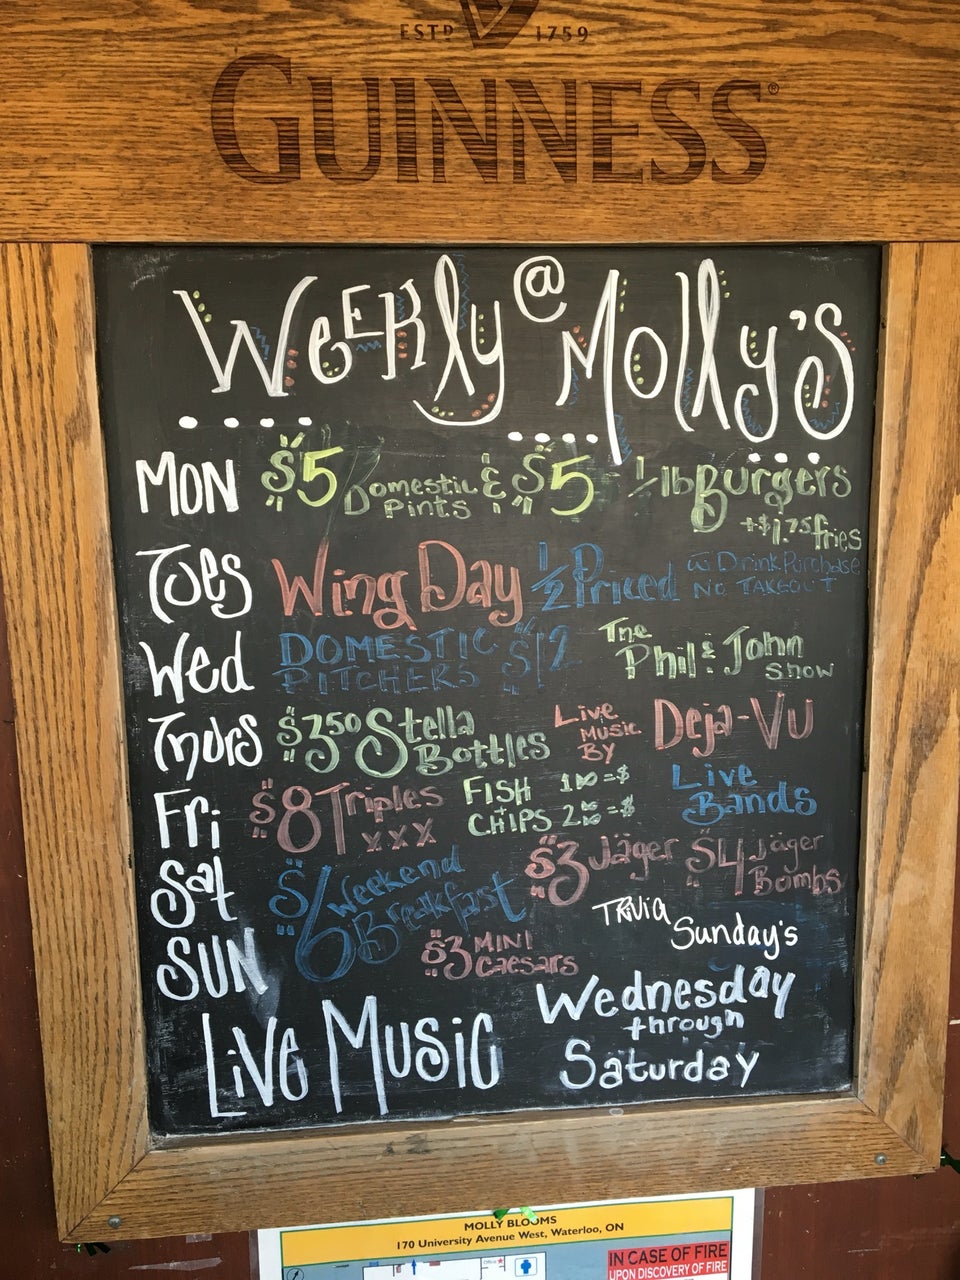 ESTD 1759
GUINNESS®
WeEKly @ Molly's
MON $5 Domestic Pints & $5 1/2 lb Burgers
+$1.75 fries
Tues Wing Day 1/2 Priced w/ Drink Purchase
NO TAKEOUT
Wed DOMESTIC PITCHERS $12 The Phil & John Show
Thurs $3.50 Stella Bottles Live Music By Deja-Vu
Fri $8 Triples xxx FISH + CHIPS Live Bands
Sat $6 Weekend Breakfast $3 Jäger $4 Jäger Bombs
TRiViA Sunday's
SUN $3 MINI Caesars
LiVe Music Wednesday through Saturday
MOLLY BLOOMS
170 University Avenue West, Waterloo, ON
IN CASE OF FIRE
UPON DISCOVERY OF FIRE